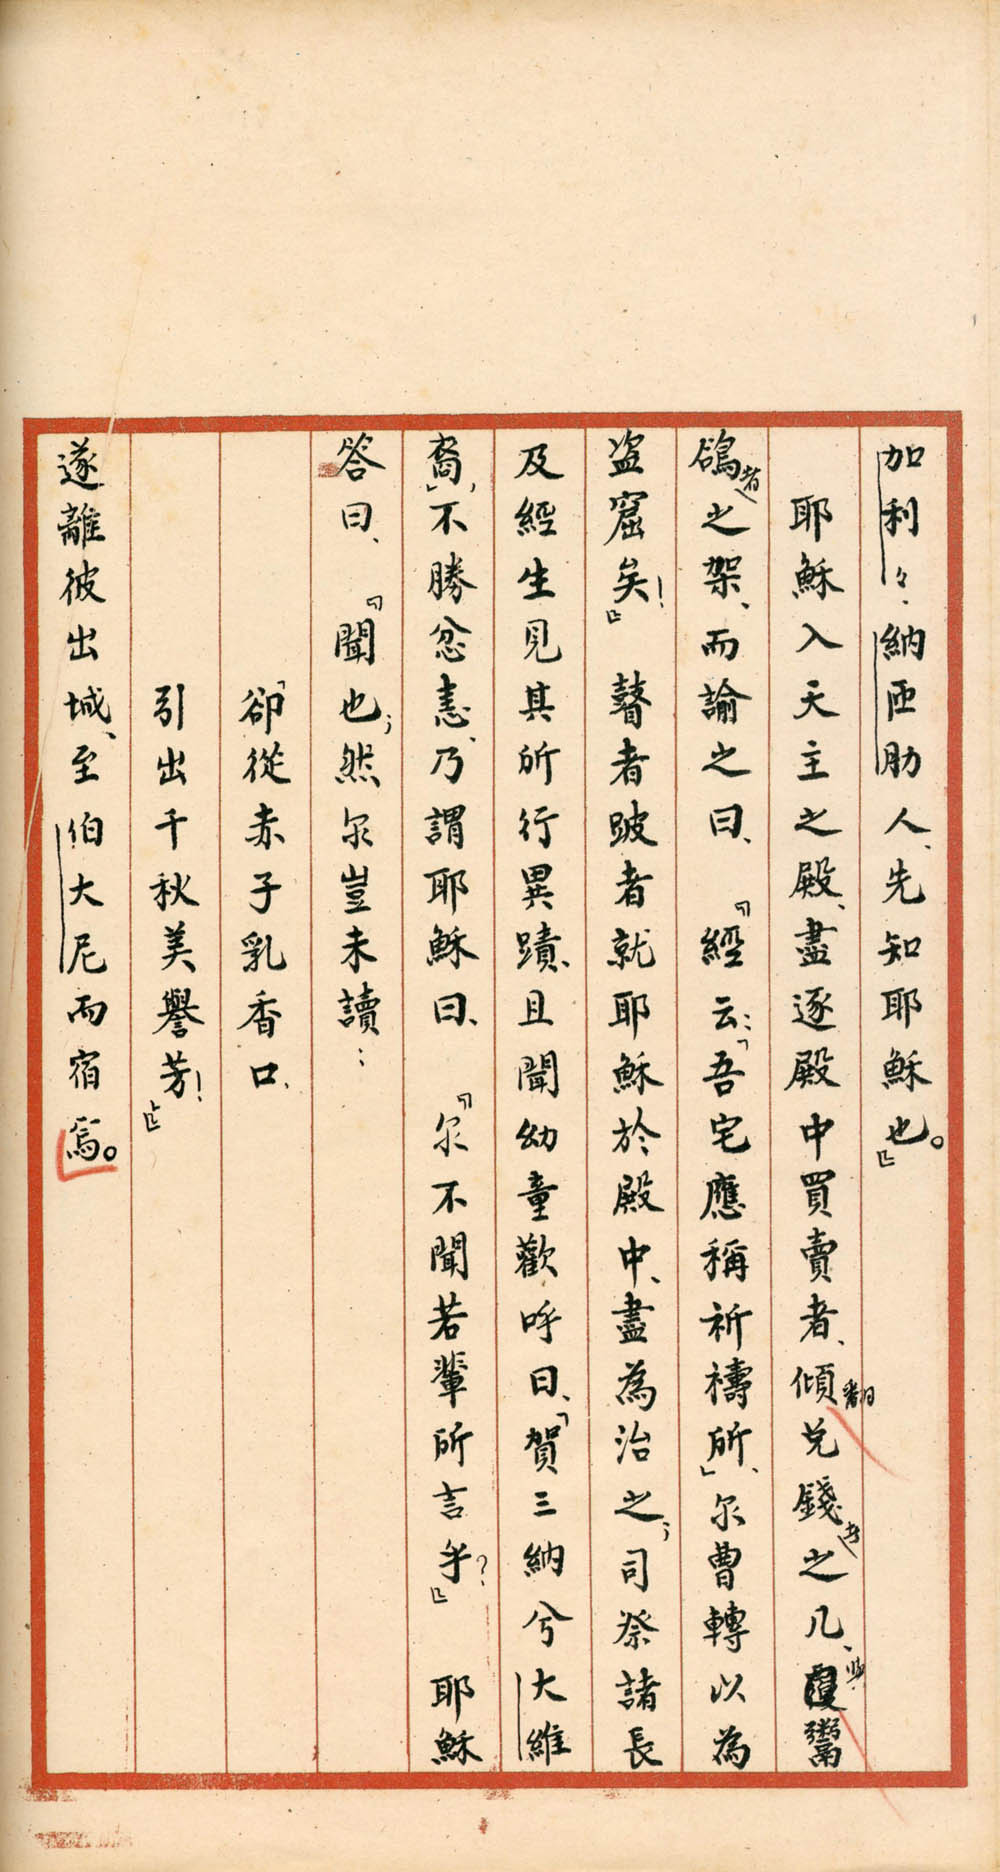 加利々、納匝肋人、先知耶穌也。』
耶穌入天主之殿、盡逐殿中買賣者、傾翻兌錢者之几、與鬻
鴿者之架、而諭之曰、『經云：「吾宅應稱祈禱所」、尔曹轉以為
盜窟矣！』瞽者跛者就耶穌於殿中、盡為治之；司祭諸長
及經生見其所行異蹟、且聞幼童歡呼曰、「賀三納兮大維
裔」、不勝忿恚、乃謂耶穌曰、『尔不聞若輩所言乎？』耶穌
答曰、『聞也；然尔豈未讀：
「卻從赤子乳香口、
引出千秋美譽芳！」』
遂離彼出城、至伯大尼而宿焉。